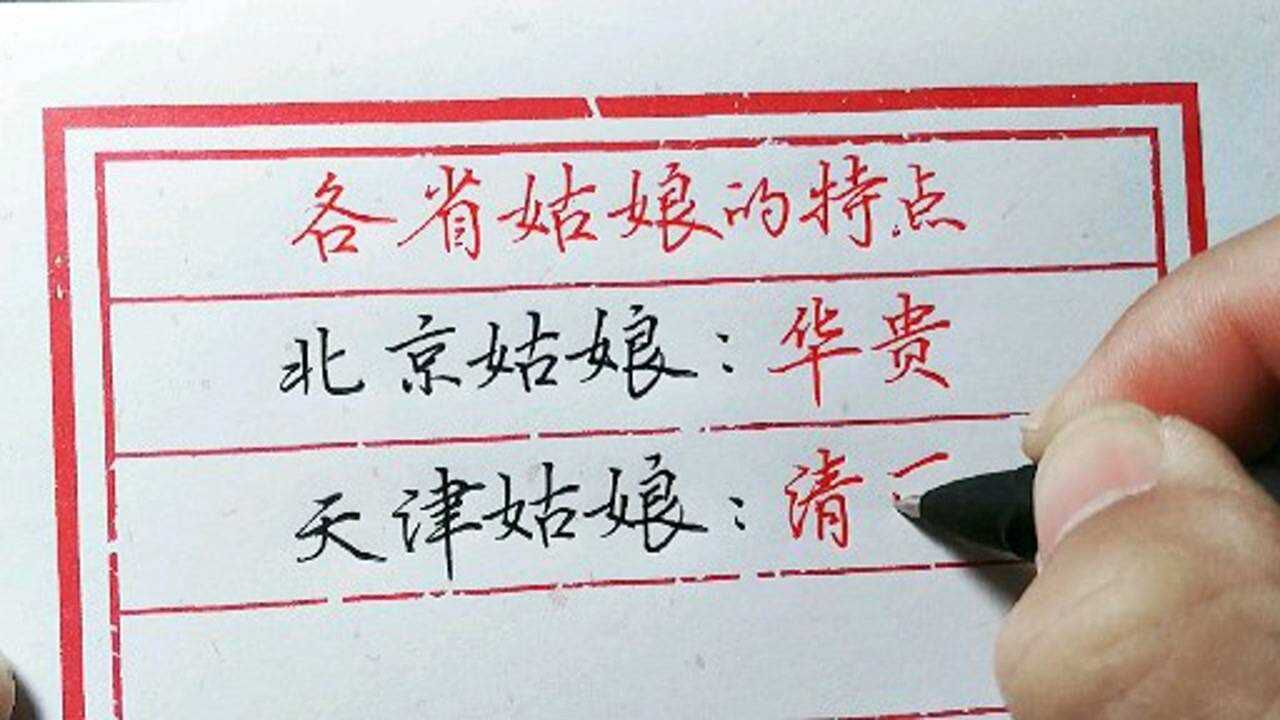 各省姑娘的特点
北京姑娘:华贵
天津姑娘:清